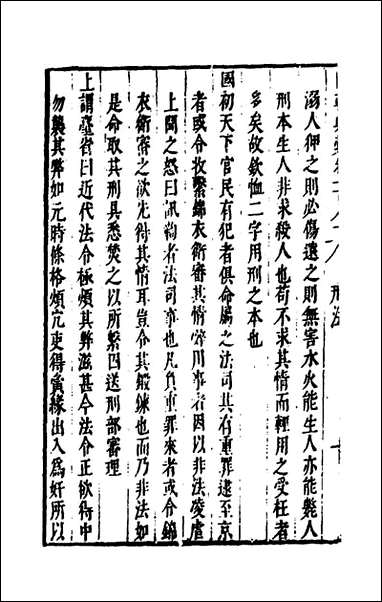 溺人狎之則必傷遠之則無害水火能生人亦能斃人
刑本生人非求殺人也苟不求其情而輕用之受枉者
多矣故欽恤二字用刑之本也
國初天下官民有犯者俱命屬之法司其有重罪逮至京
者或令收繫錦衣衛審其情辭用事者因以非法凌虐
上聞之怒曰訊鞫者法司事也凡負重罪來者或令錦
衣衛審之欲先得其情耳豈令其鍛鍊也而乃非法如
是命取其刑具悉焚之以所繫囚送刑部審理
上謂臺省曰近代法令極煩其弊滋甚今法令正欲得中
勿襲其弊如元時條格煩冗吏得夤緣出入為奸所以
刑法